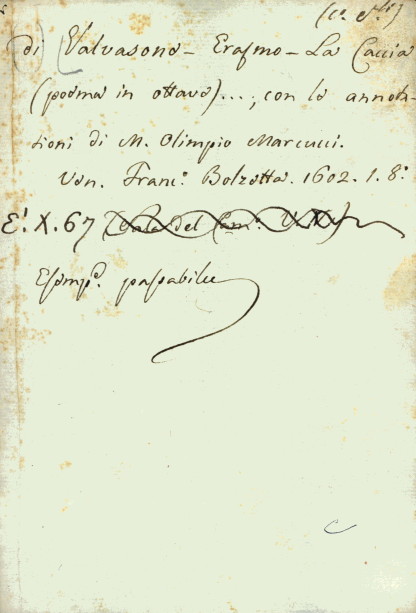 di Valvasone – Erasmo – La Caccia
(poema in ottava)...; con le annota-
zioni di M. Olimpio Marcucci.
Ven. Franc.º Bolzetta. 1602. 1. 8º
E! X. 67
Esemp.e passabile